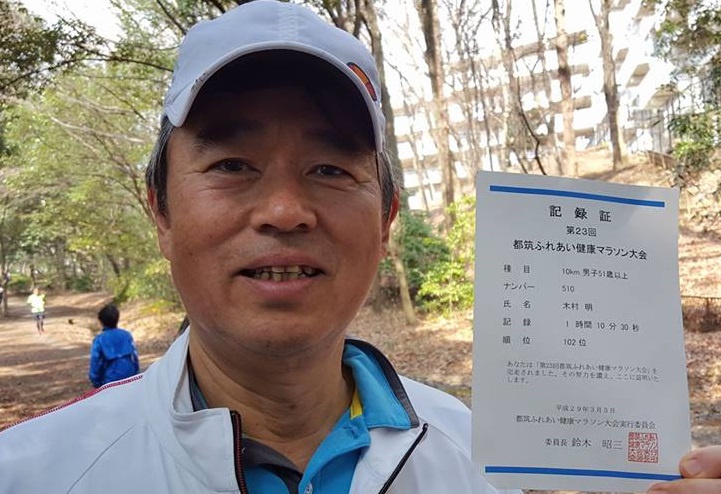 記録証
第23回
都筑ふれあい健康マラソン大会
種目 10km 男子51歳以上
ナンバー 510
氏名 木村 明
記録 1時間10分30秒
順位 102位
あなたは「第23回都筑ふれあい健康マラソン大会」を
完走されました。その努力を讃え、ここに証明いた
します。
平成29年3月5日
都筑ふれあい健康マラソン大会実行委員会
委員長 鈴木 昭三